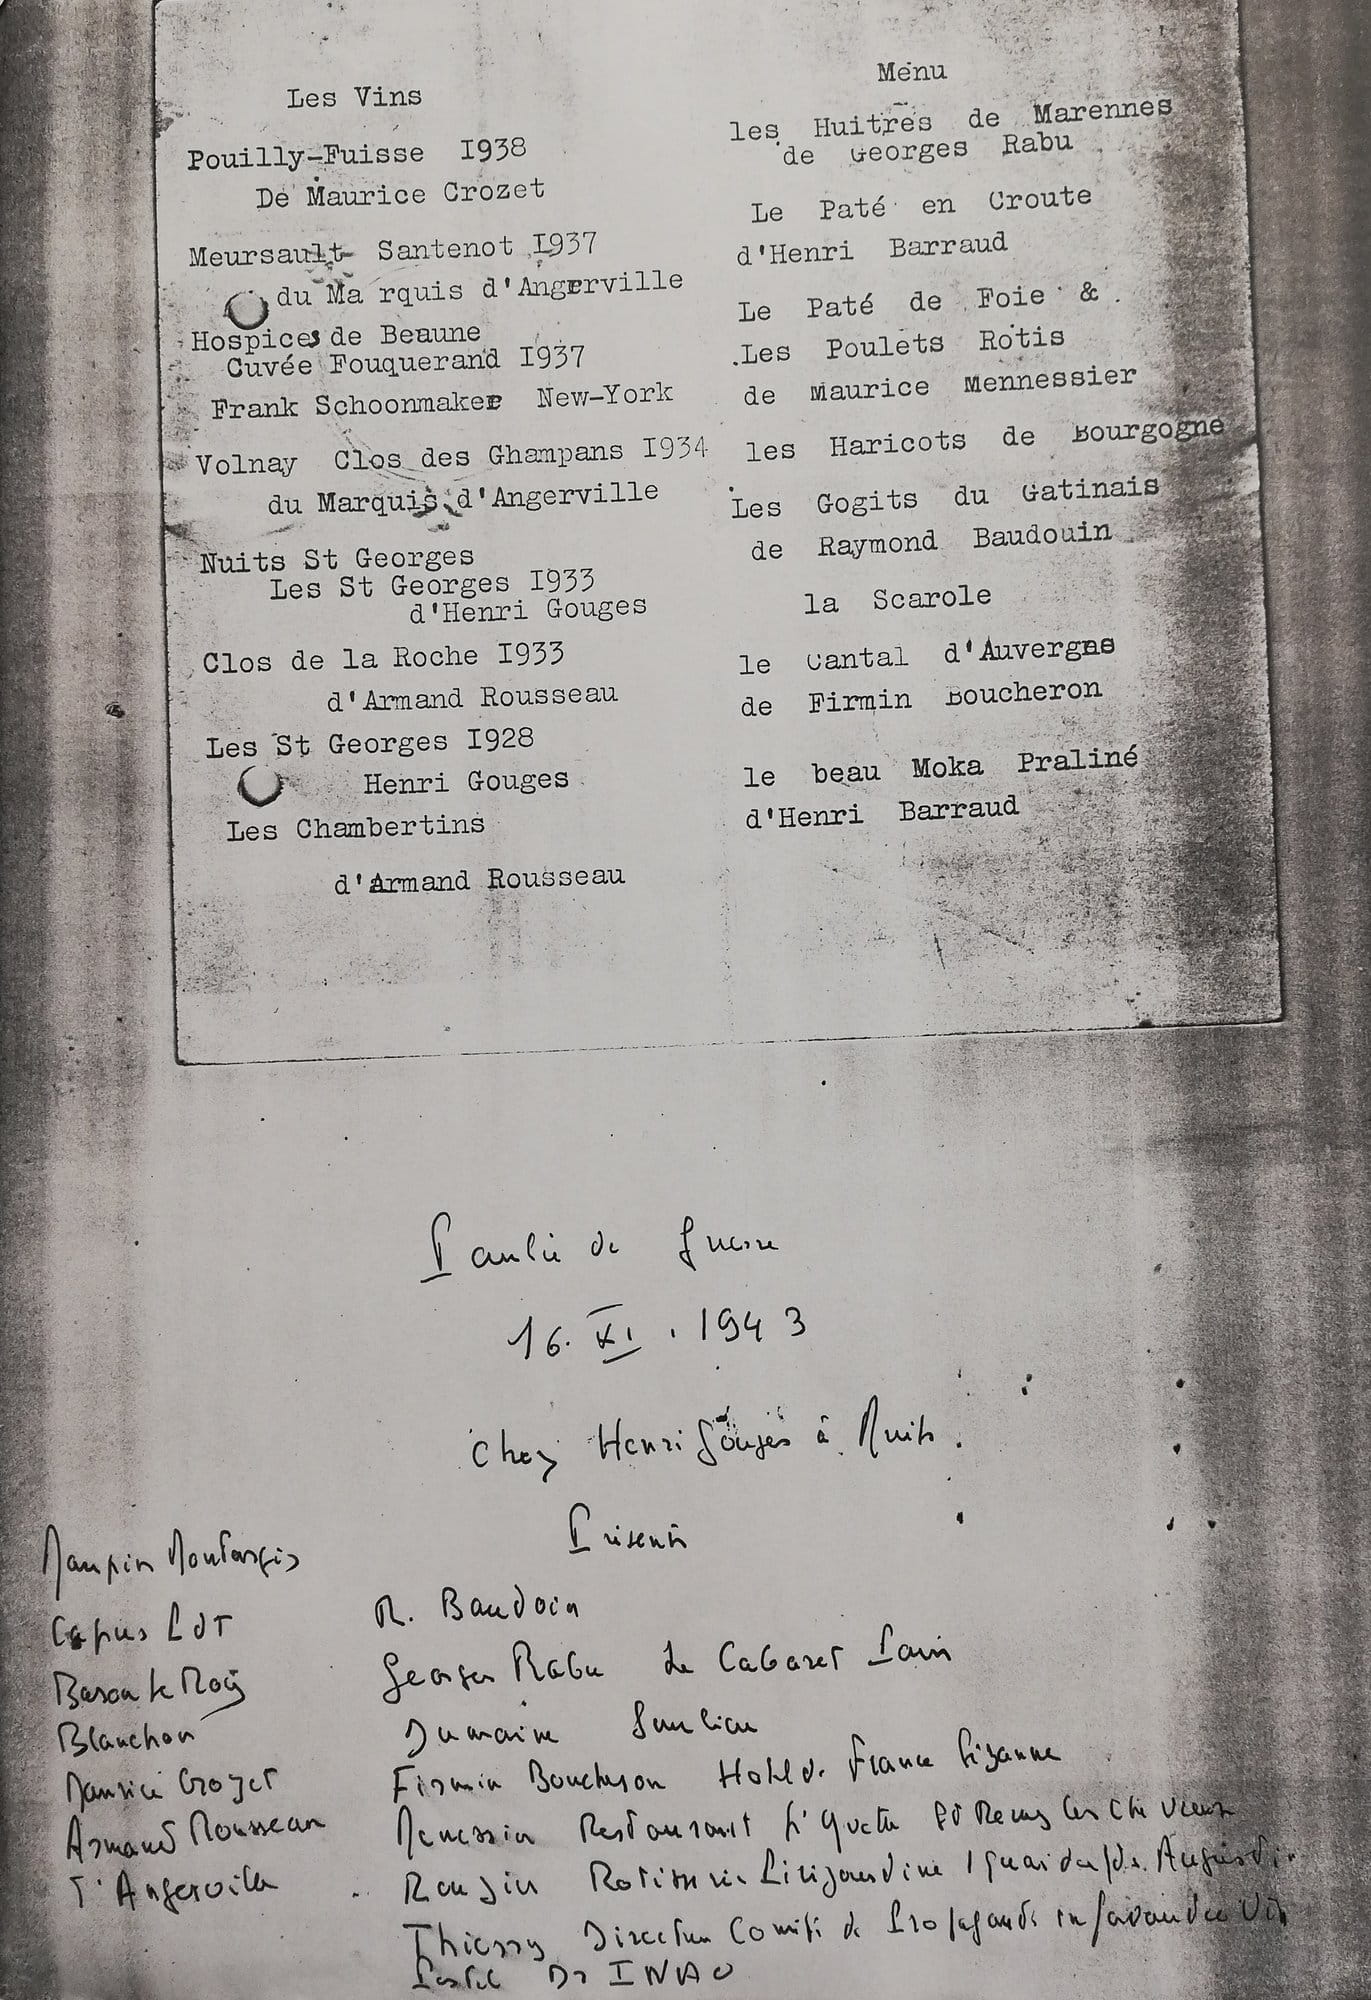 Les Vins
Pouilly-Fuisse I938
De Maurice Crozet
Meursault- Santenot I937
du Ma rquis d'Angerville
Hospices de Beaune
Cuvée Fouquerand I937
Frank Schoonmaker New-York
Volnay Clos des Ghampans I934
du Marquis d'Angerville
Nuits St Georges
Les St Georges I933
d'Henri Gouges
Clos de la Roche I933
d'Armand Rousseau
Les St Georges I928
Henri Gouges
Les Chambertins
d'Armand Rousseau
Menu
les Huitres de Marennes
de Georges Rabu
Le Paté en Croute
d'Henri Barraud
Le Paté de Foie &
Les Poulets Rotis
de Maurice Mennessier
les Haricots de Bourgogne
Les Gogits du Gatinais
de Raymond Baudouin
la Scarole
le Cantal d'Auvergne
de Firmin Boucheron
le beau Moka Praliné
d'Henri Barraud
Paulée de Guerre
16. XI. 1943
chez Henri Gouges à Nuits.
Présents
Maupin Montargis
Capus
Baron le Roy
Blanchon
Maurice Crozet
Armand Rousseau
d'Angerville
R. Baudoin
Georges Rabu Le Cabaret Paris
Dumaine Saulieu
Firmin Boucheron Hotel de France
Restaurant St Remy les Chevreuse
Rouzier Rotisserie Périgourdine 1 quai des Gds. Augustins
Thierry Directeur Comité de Propagande en faveur du Vin
Pestel Dr INAO